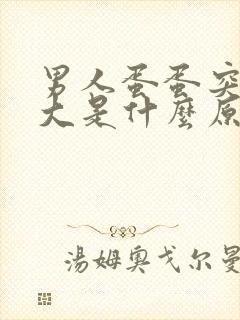 男人蛋蛋突
大是什麼原
湯姆奧戈尔曼